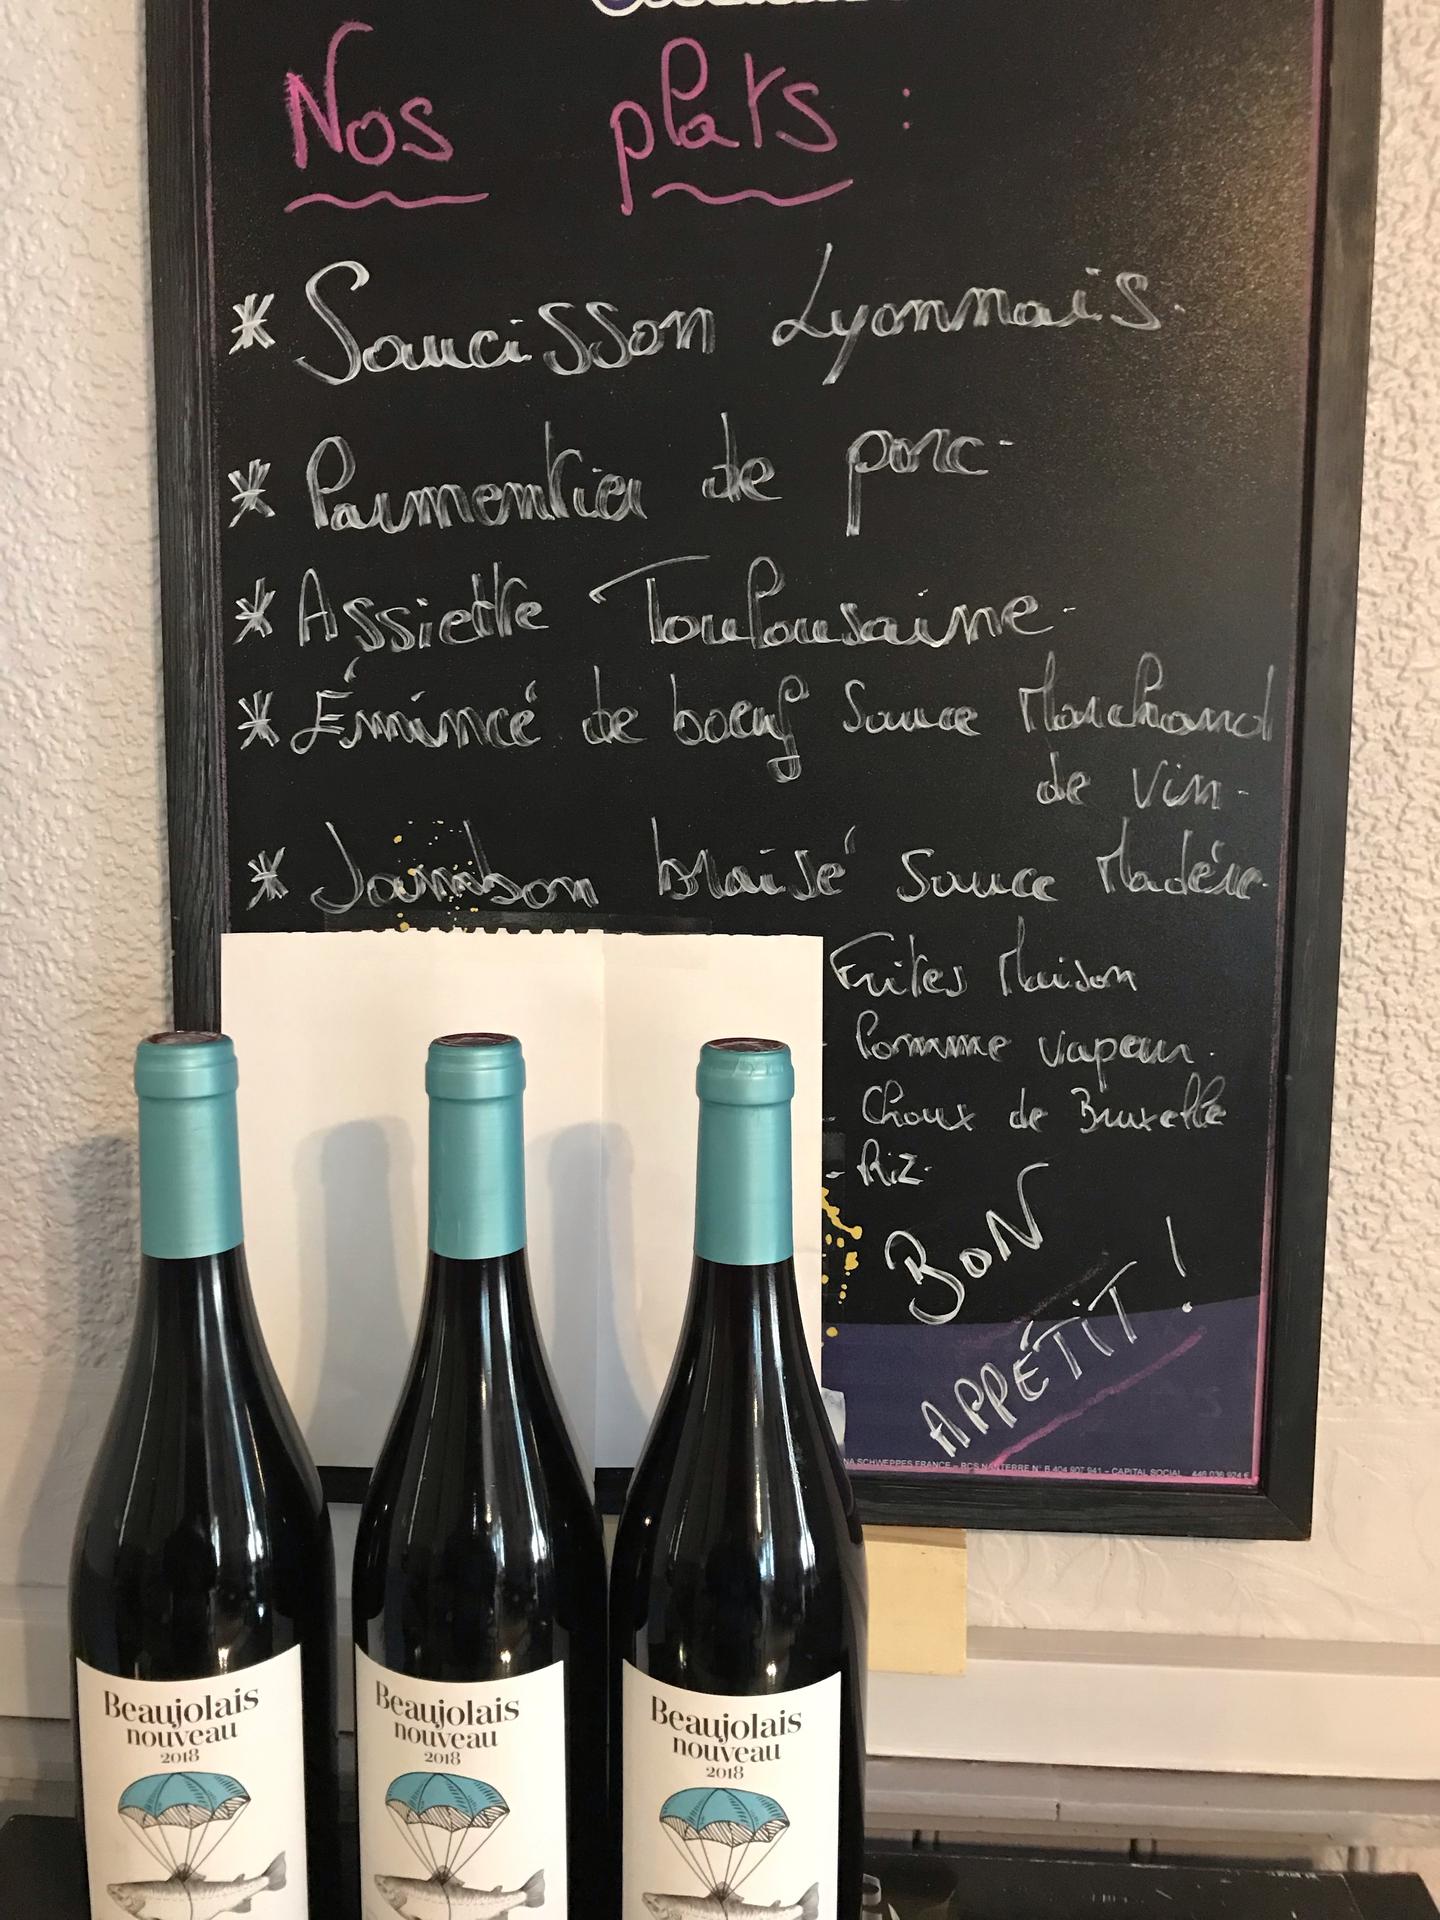 Nos plats :
* Saucisson Lyonnais.
* Parmentier de porc.
* Assiette Toulousaine.
* Émincé de boeuf Sauce Marchand
de Vin.
* Jambon braisé Sauce Madère.
Frites Maison
- Pomme vapeur.
- Choux de Bruxelle
- Riz.
BON
APPÉTIT !
NA SCHWEPPES FRANCE – RCS NANTERRE N° B 404 907 941 – CAPITAL SOCIAL 446 036 924 €
Beaujolais
nouveau
2018
Beaujolais
nouveau
2018
Beaujolais
nouveau
2018